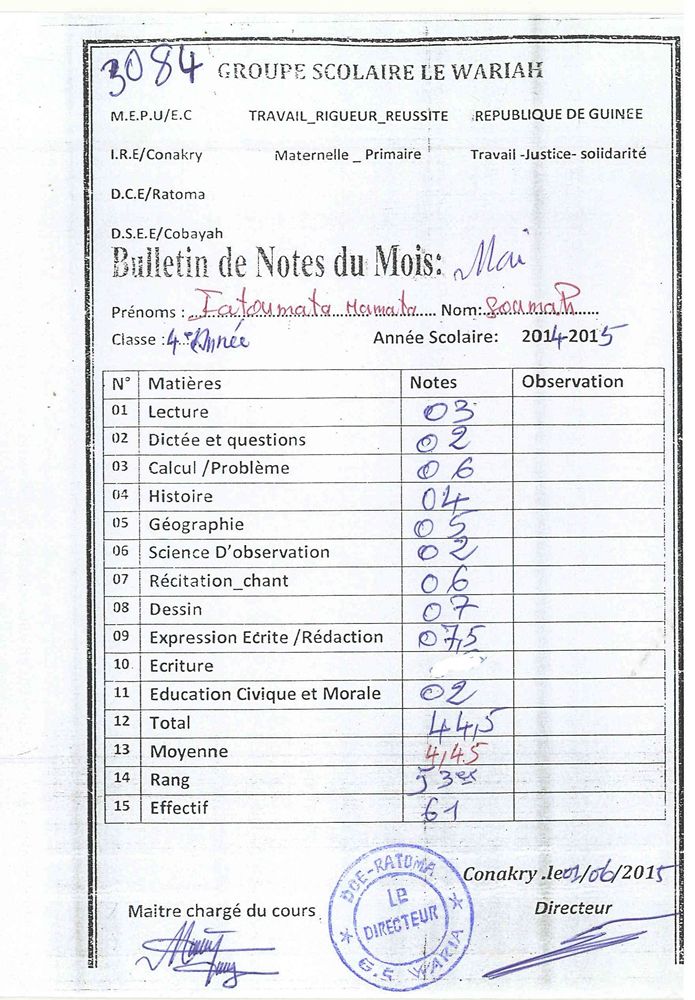 3084 GROUPE SCOLAIRE LE WARIAH
M.E.P.U/E.C TRAVAIL_RIGUEUR_REUSSITE REPUBLIQUE DE GUINEE
I.R.E/Conakry Maternelle _ Primaire Travail -Justice- soiidarité
D.C.E/Ratoma
D.S.E.E/Cobayah
Bulletin de Notes du Mois: Mai
Prénoms : Fatoumata Mamata Nom: Soumah
Classe : 4e Année Année Scolaire: 2014-2015
N° Matières Notes Observation
01 Lecture 03
02 Dictée et questions 02
03 Calcul /Problème 06
04 Histoire 04
05 Géographie 05
06 Science D'observation 02
07 Récitation_chant 06
08 Dessin 07
09 Expression Ecrite /Rédaction 07,5
10 Ecriture
11 Education Civique et Morale 02
12 Total 44,5
13 Moyenne 4,45
14 Rang 53ex
15 Effectif 61
Conakry .le 01/06/2015
Maitre chargé du cours Directeur
DCE-RATOMA
LE
DIRECTEUR
G.S WARIA